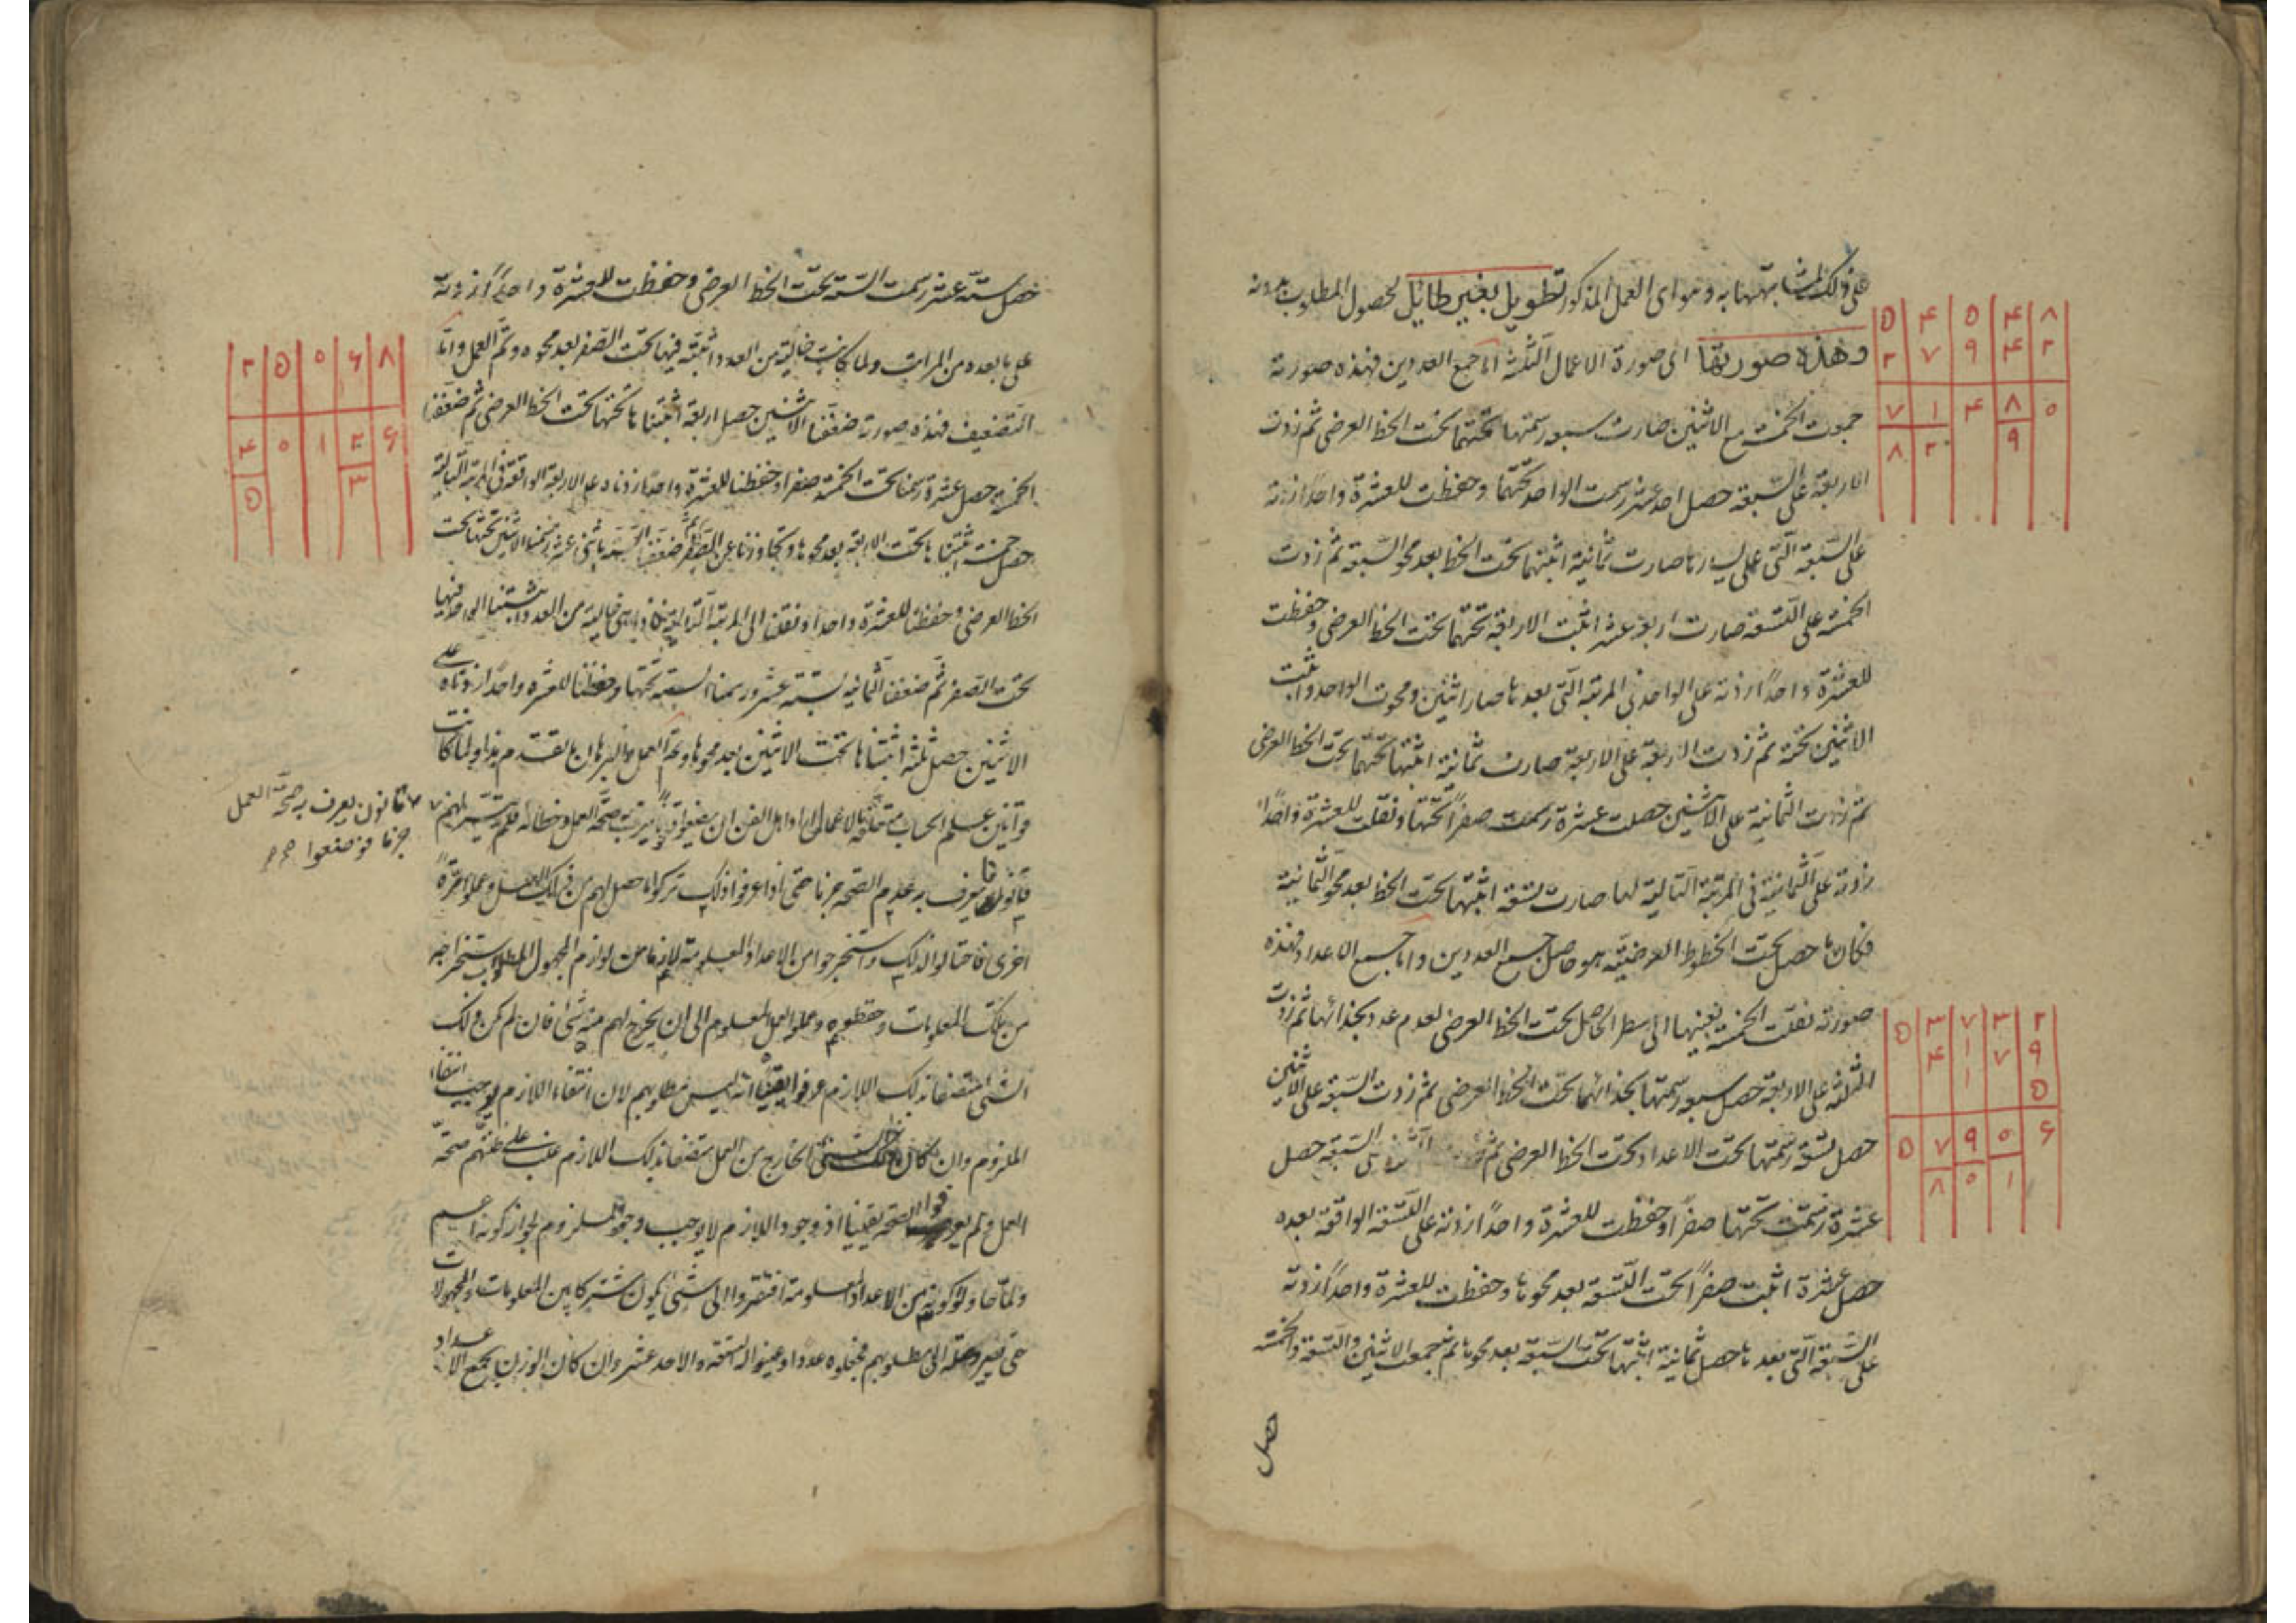 على ذلك لمشابهتهما به وهو اى العمل المذكور تطويل بغير طايل لحصول المطلوب بدونه
وهذه صورتها اى صورة الاعمال الثلثة اما جمع العددين فهذه صورته
جمعت الخمسة مع الاثنين صارت سبعة رسمتها تحتهما تحت الخط العرضى ثم زدت
الاربعة على السبعة حصل احد عشر رسمت الواحد تحتهما وحفظت للعشرة واحدا زدته
على السبعة التى على يسارها صارت ثمانية اثبتها تحت الخط بعد محو السبعة ثم زدت
الخمسة على التسعة صارت اربعة عشر اثبت الاربعة تحتهما تحت الخط العرضى وحفظت
للعشرة واحدا زدته على الواحد فى المرتبة التى بعدها صار اثنين ومحوت الواحد واثبت
الاثنين تحته ثم زدت الاربعة على الاربعة صارت ثمانية اثبتها تحتهما تحت الخط العرضى
ثم زدت الثمانية على الاثنين حصلت عشرة رسمت صفرا تحتها ونقلت للعشرة واحدا
زدته على الثمانية فى المرتبة التالية لها صارت تسعة اثبتها تحت الخط بعد محو الثمانية
فكان ما حصل تحت الخطوط العرضية هو حاصل جمع العددين واما جمع الاعداد فهذه
صورته نقلت الخمسة بعينها الى سطر الحاصل تحت الخط العرضى لعدم عدد بحذائها ثم زدت
الثلثة على الاربعة حصل سبعة رسمتها بحذائهما تحت الخط العرضى ثم زدت السبعة على الاثنين
حصل تسعة رسمتها تحت الاعداد تحت الخط العرضى ثم السبعة حصل
عشرة رسمت تحتها صفرا وحفظت للعشرة واحدا زدته على التسعة الواقعة بعده
حصل عشرة اثبت صفرا تحت التسعة بعد محوها وحفظت للعشرة واحدا زدته
على السبعة التى بعدها حصل ثمانية اثبتها تحت السبعة بعد محوها ثم جمعت الاثنين والتسعة والخمسة
حصل
۵ ۴ ۵ ۴ ۸
۲ ۷ ۹ ۴ ۲
۷ ۱ ۴ ۸ ۰
۸ ۲ ۹
۵ ۳ ۷ ۳ ۲
۴ ۱ ۷ ۹
۱ ۵
۵ ۷ ۹ ۰ ۶
۸ ۰ ۱
حصل ستة عشر رسمت الستة تحت الخط العرضى وحفظت للعشرة واحدا زدته
على ما بعده من المراتب ولما كانت خالية من العدد اثبته فيها تحت الصفر بعد محوه وتم العمل واما
التضعيف فهذه صورته ضعفنا الاثنين حصل اربعة اثبتناها تحتها تحت الخط العرضى ثم ضعفنا
الخمسة حصل عشرة رسمنا تحت الخمسة صفرا وحفظنا للعشرة واحدا زدناه على الاربعة الواقعة فى المرتبة التالية
حصل خمسة اثبتناها تحت الاربعة بعد محوها وتجاوزنا عن الصفر ثم ضعفنا الستة باثنى عشر رسمنا الاثنين تحتها تحت
الخط العرضى وحفظنا للعشرة واحدا ونقلنا الى المرتبة التالية فاذا هى خالية من العدد اثبتنا الواحد فيها
تحت الصفر ثم ضعفنا الثمانية بستة عشر ورسمنا الستة تحتها وحفظنا للعشرة واحدا زدناه على
الاثنين حصل ثلثة اثبتناها تحت الاثنين بعد محوها وتم العمل والبرهان ما تقدم هذا ولما كانت
قوانين علم الحساب متعلقة بالاعمال اراد اهل الفن ان يضعوا قانونا يعرف به صحة العمل وخطائه فلم يتيسر لهم
قانون يعرف به عدم الصحة جزما حتى اذا عرفوا ذلك تركوا ما حصل لهم من ذلك العمل وعملوا مرة
اخرى فاحتالوا لذلك واستخرجوا من الاعداد المعلومة لازما من لوازم المجهول المطلوب استخراجه
من تلك المعلومات وحفظوه وعملوا العمل المعلوم الى ان يخرج لهم منه شئ فان لم يكن ذلك
الشئ متصفا بذلك اللازم عرفوا يقينا انه ليس مطلوبهم لان انتفاء اللازم يوجب انتفاء
الملزوم وان كان ذلك الشئ الخارج من العمل متصفا بذلك اللازم غلب على ظنهم صحة
العمل ولم يعرفوا الصحة يقينا اذ وجود اللازم لا يوجب وجود الملزوم لجواز كونه اعم
ولما حاولوا كونه من الاعداد المعلومة افتقروا الى شئ يكون مشتركا بين المعلومات والمجهولات
حتى يصير وصلة الى مطلوبهم فجعلوه عددا وعينوا له التسعة والاحد عشر وان كان الوزن بجميع الاعداد
قانون يعرف به صحة العمل
جزما فوضعوا
۲ ۵ ۰ ۶ ۸
۴ ۰ ۱ ۲ ۶
۵ ۳